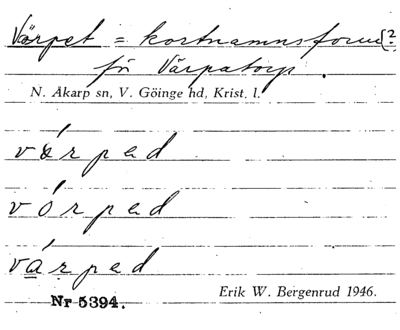 Vårpet = kortnamnsform [?]
för Vårpatorp.
N. Åkarp sn, V. Göinge hd, Krist. l.
várpad
vórpad
várpad
Nr 5394.
Erik W. Bergenrud 1946.